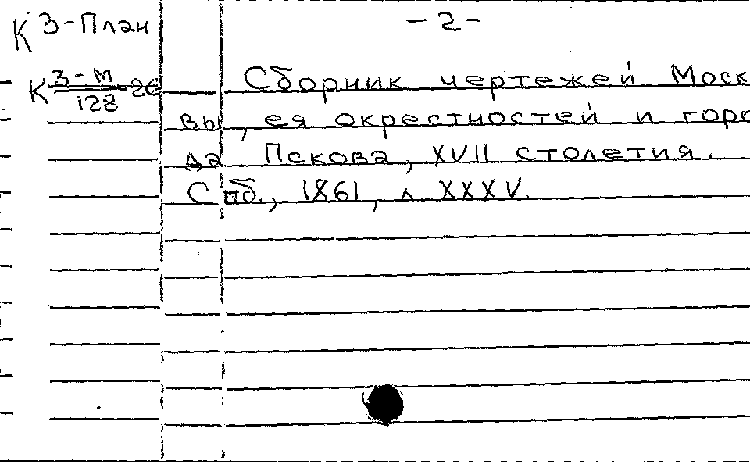 К З-План
- 2 -
К З-М/128-26
Сборник чертежей Моск
вы, ея окрестностей и горо
да Пскова, XVII столетия.
Спб., 1861, л. XXXV.